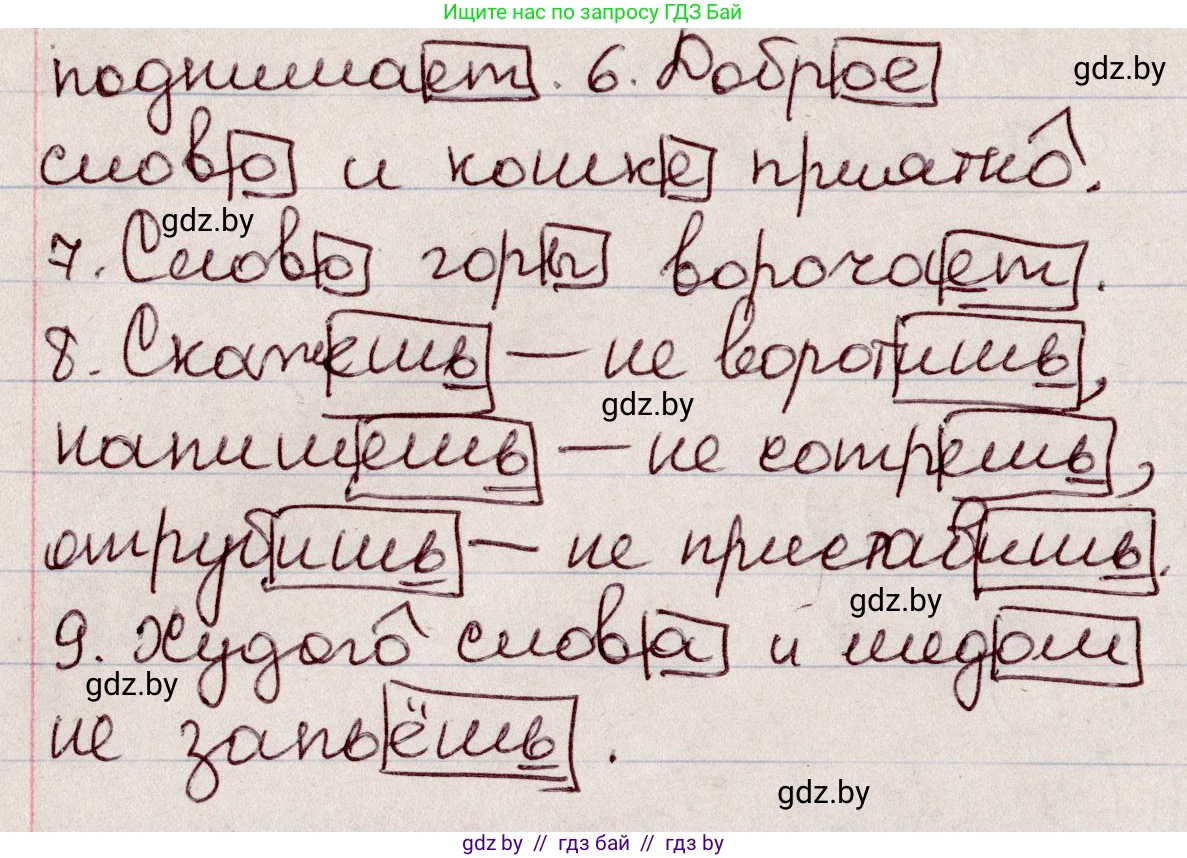 Ищите нас по запросу ГДЗ Бай
поднимает. 6. Доброе
gdz.by
слово и кошке приятно.
gdz.by
7. Слово горы ворочает.
8. Скажешь — не воротишь,
gdz.by
напишешь — не сотрешь,
отрубишь — не приставишь.
gdz.by
9. Худого слова и медом
gdz.by
не запьёшь.
gdz.by
gdz by // гдз бай // гдз by